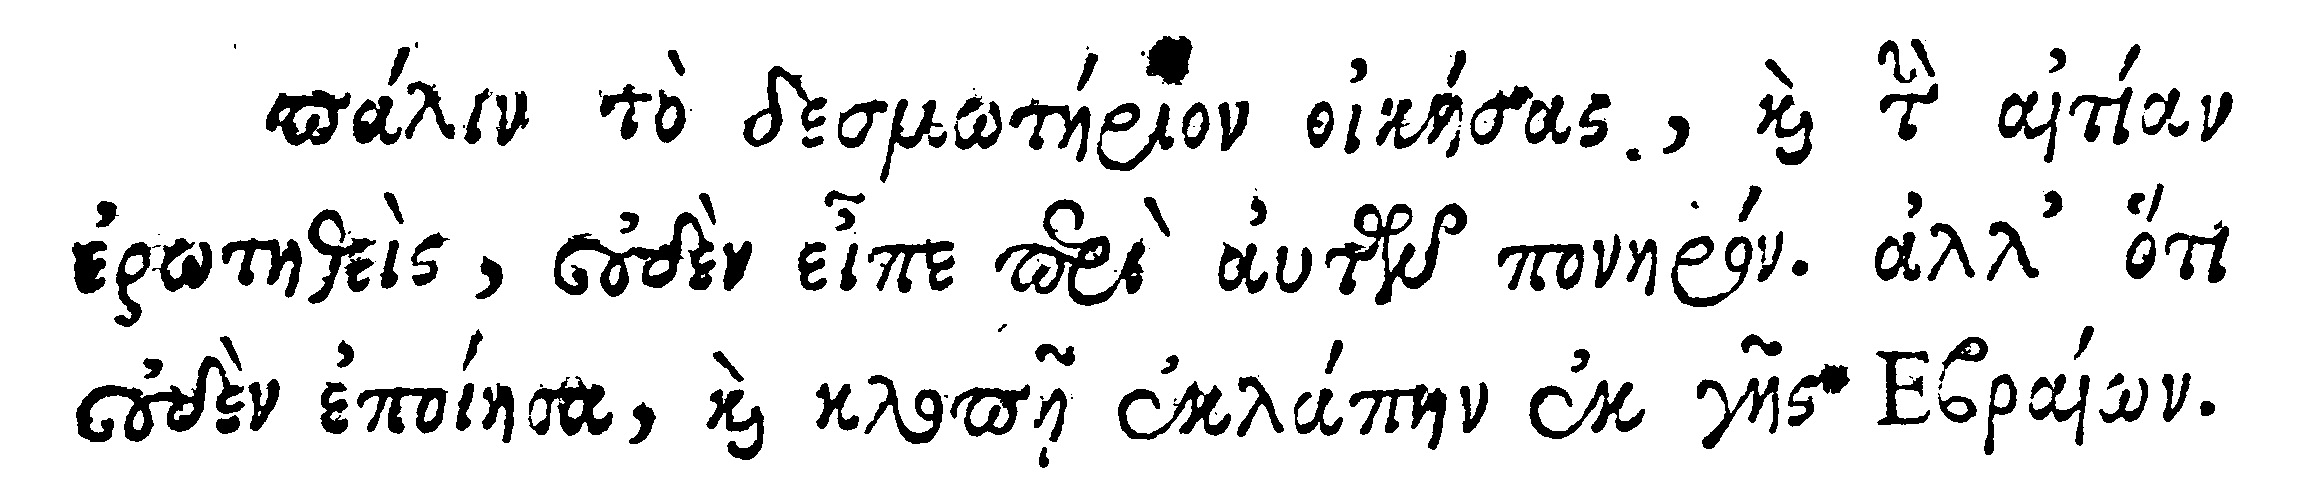 πάλιν τὸ δεσμωτήριον οἰκήσας, καὶ τὴν αἰτίαν
ἐρωτηθεὶς, οὐδὲν εἶπε περὶ ἀυτῶν πονηρόν. ἀλλ' ὅτι
οὐδὲν ἐποίησα, καὶ κλοπῇ ἐκλάπην ἐκ γῆς Εβραίων.